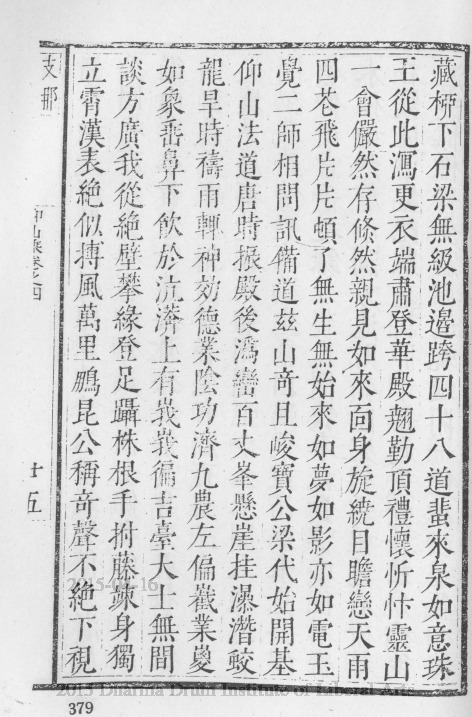 藏桺下石梁無級池邊跨四十八道蜚來泉如意珠
王從此瀉更衣端肅登華殿翹勤頂禮懷忻忭靈山
一會儼然存倏然親見如來面身旋繞目瞻戀天雨
四花飛片片頓了無生無始來如夢如影亦如電玉
覺二師相問訊備道茲山奇且峻寶公梁代始開基
仰山法道唐時振殿後溈巒百丈峯懸崖挂瀑潛蛟
龍旱時禱雨輒神効德業陰功濟九農左偏嶻嶪嵏
如象垂鼻下飲於沆瀣上有峩峩徧吉臺大士無間
談方廣我從絶壁攀緣登足躡株根手拊藤竦身獨
立霄漢表絶似摶風萬里鵬昆公稱奇聲不絶下視
支那
仰山乘卷之四
十五
2015-04-16
2013 Dharma Drum Institute of Liberal Arts
379